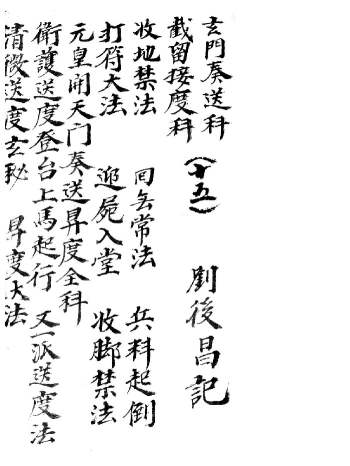 玄門奏送科
截留接度科 (十五) 劉後昌記
收地禁法 回喪常法 兵料起倒
打符大法 追屍入堂 收脚禁法
元皇開天门奏送昇度全科
衛護送度登台上馬起行 又一派送度法
清微送度玄秘 昇度大法